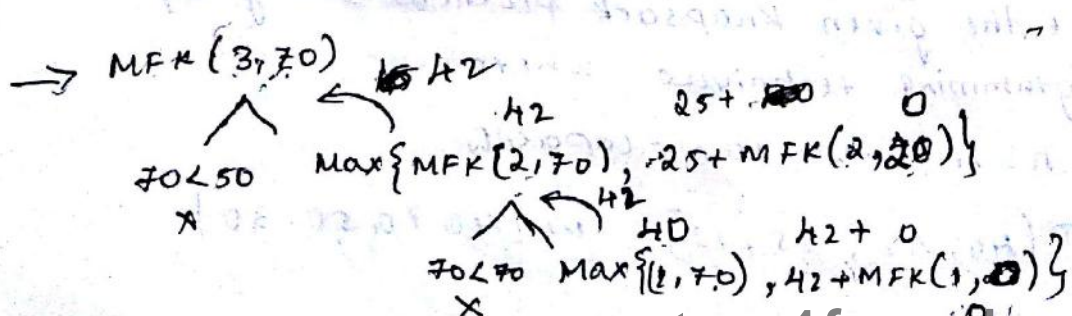 → MFK(3,70) 42
42 25+ 0
70<50 Max{MFK(2,70), 25+MFK(2,20)}
x 42
40 42+0
70<70 Max{(1,70), 42+MFK(1,0)}
x 0